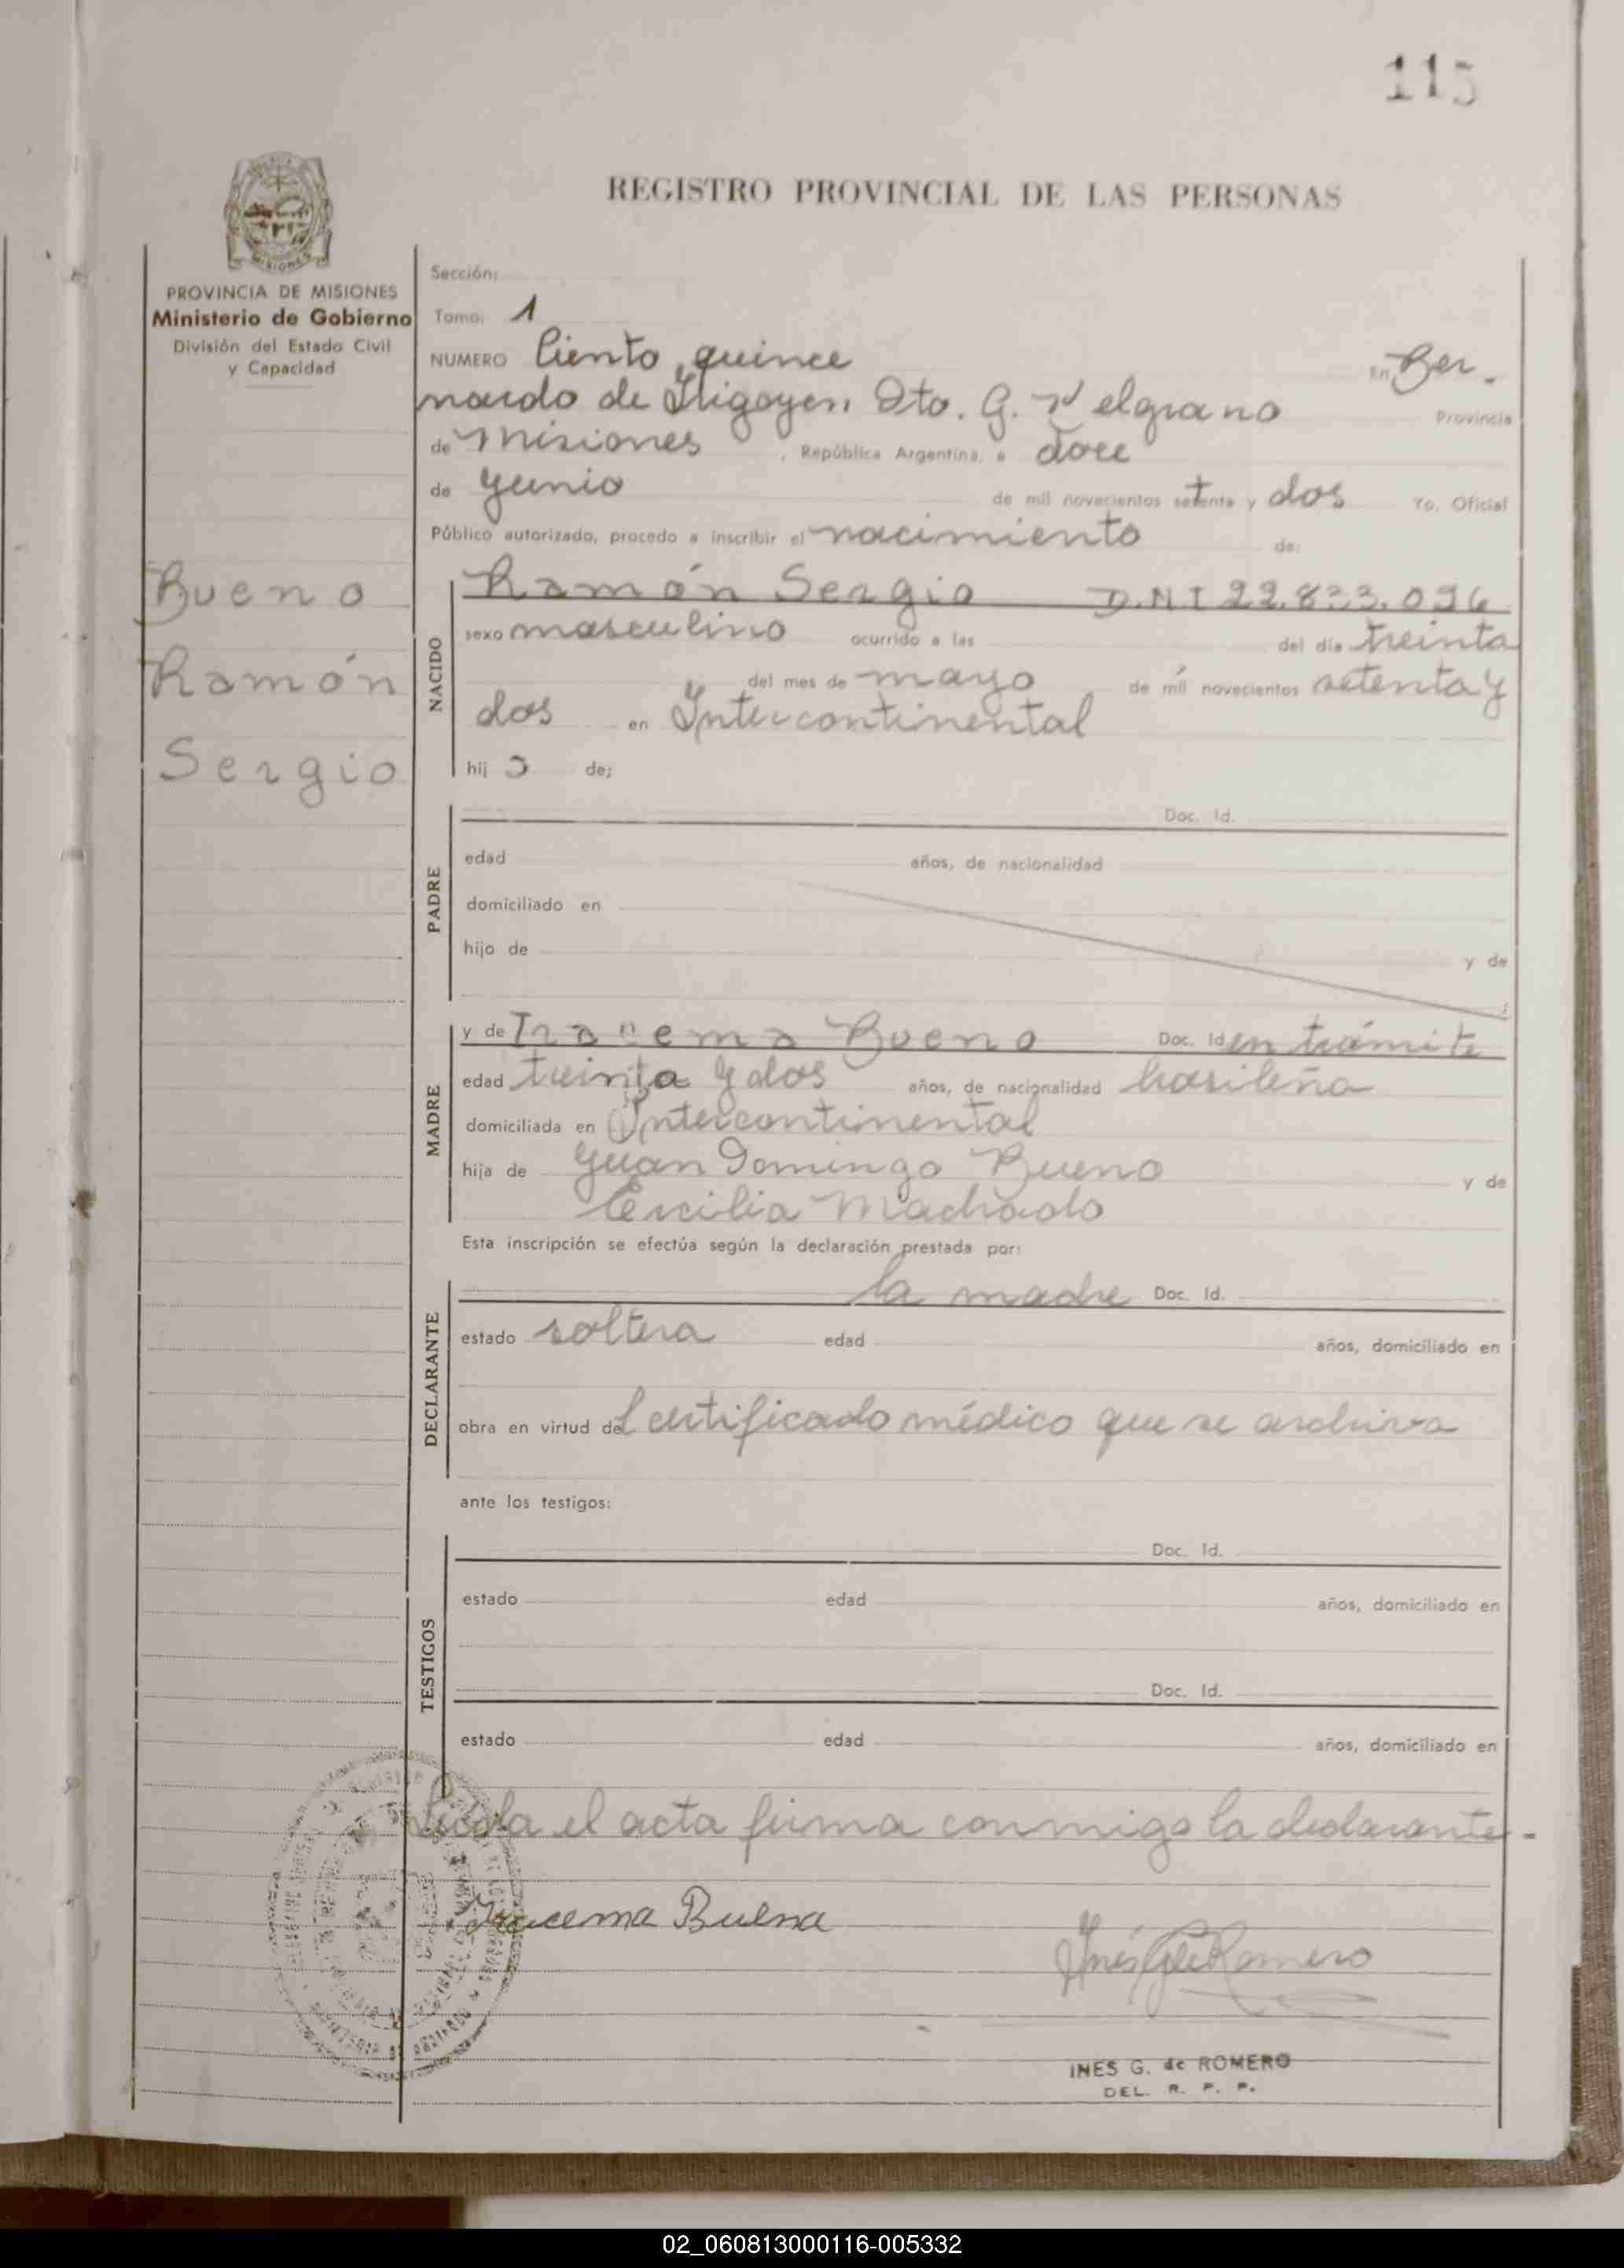 115
REGISTRO PROVINCIAL DE LAS PERSONAS
MISIONES
PROVINCIA DE MISIONES
Ministerio de Gobierno
División del Estado Civil
y Capacidad
Bueno
Ramón
Sergio
Sección:
Tomo: 1
NUMERO Ciento quince En Ber-
nardo de Irigoyen Dto. G. Belgrano Provincia
de Misiones, República Argentina, a doce
de Junio de mil novecientos setenta y dos Yo, Oficial
Público autorizado, procedo a inscribir el nacimiento de:
NACIDO
Ramón Sergio D.N.I 22.833.096
sexo masculino ocurrido a las del día treinta
del mes de mayo de mil novecientos setenta y
dos en Intercontinental
hij o de;
PADRE
Doc. Id.
edad años, de nacionalidad
domiciliado en
hijo de y de
MADRE
y de Iracema Bueno Doc. Id. en trámite
edad treinta y dos años, de nacionalidad brasileña
domiciliada en Intercontinental
hija de Juan Domingo Bueno y de
Cercilia Machado
Esta inscripción se efectúa según la declaración prestada por:
DECLARANTE
la madre Doc. Id.
estado soltera edad años, domiciliado en
obra en virtud del certificado médico que se archiva
ante los testigos:
TESTIGOS
Doc. Id.
estado edad años, domiciliado en
Doc. Id.
estado edad años, domiciliado en
Leída el acta firma conmigo la declarante-
Iracema Buena
Inés G de Romero
INES G. de ROMERO
DEL. R. P. P.
02_060813000116-005332